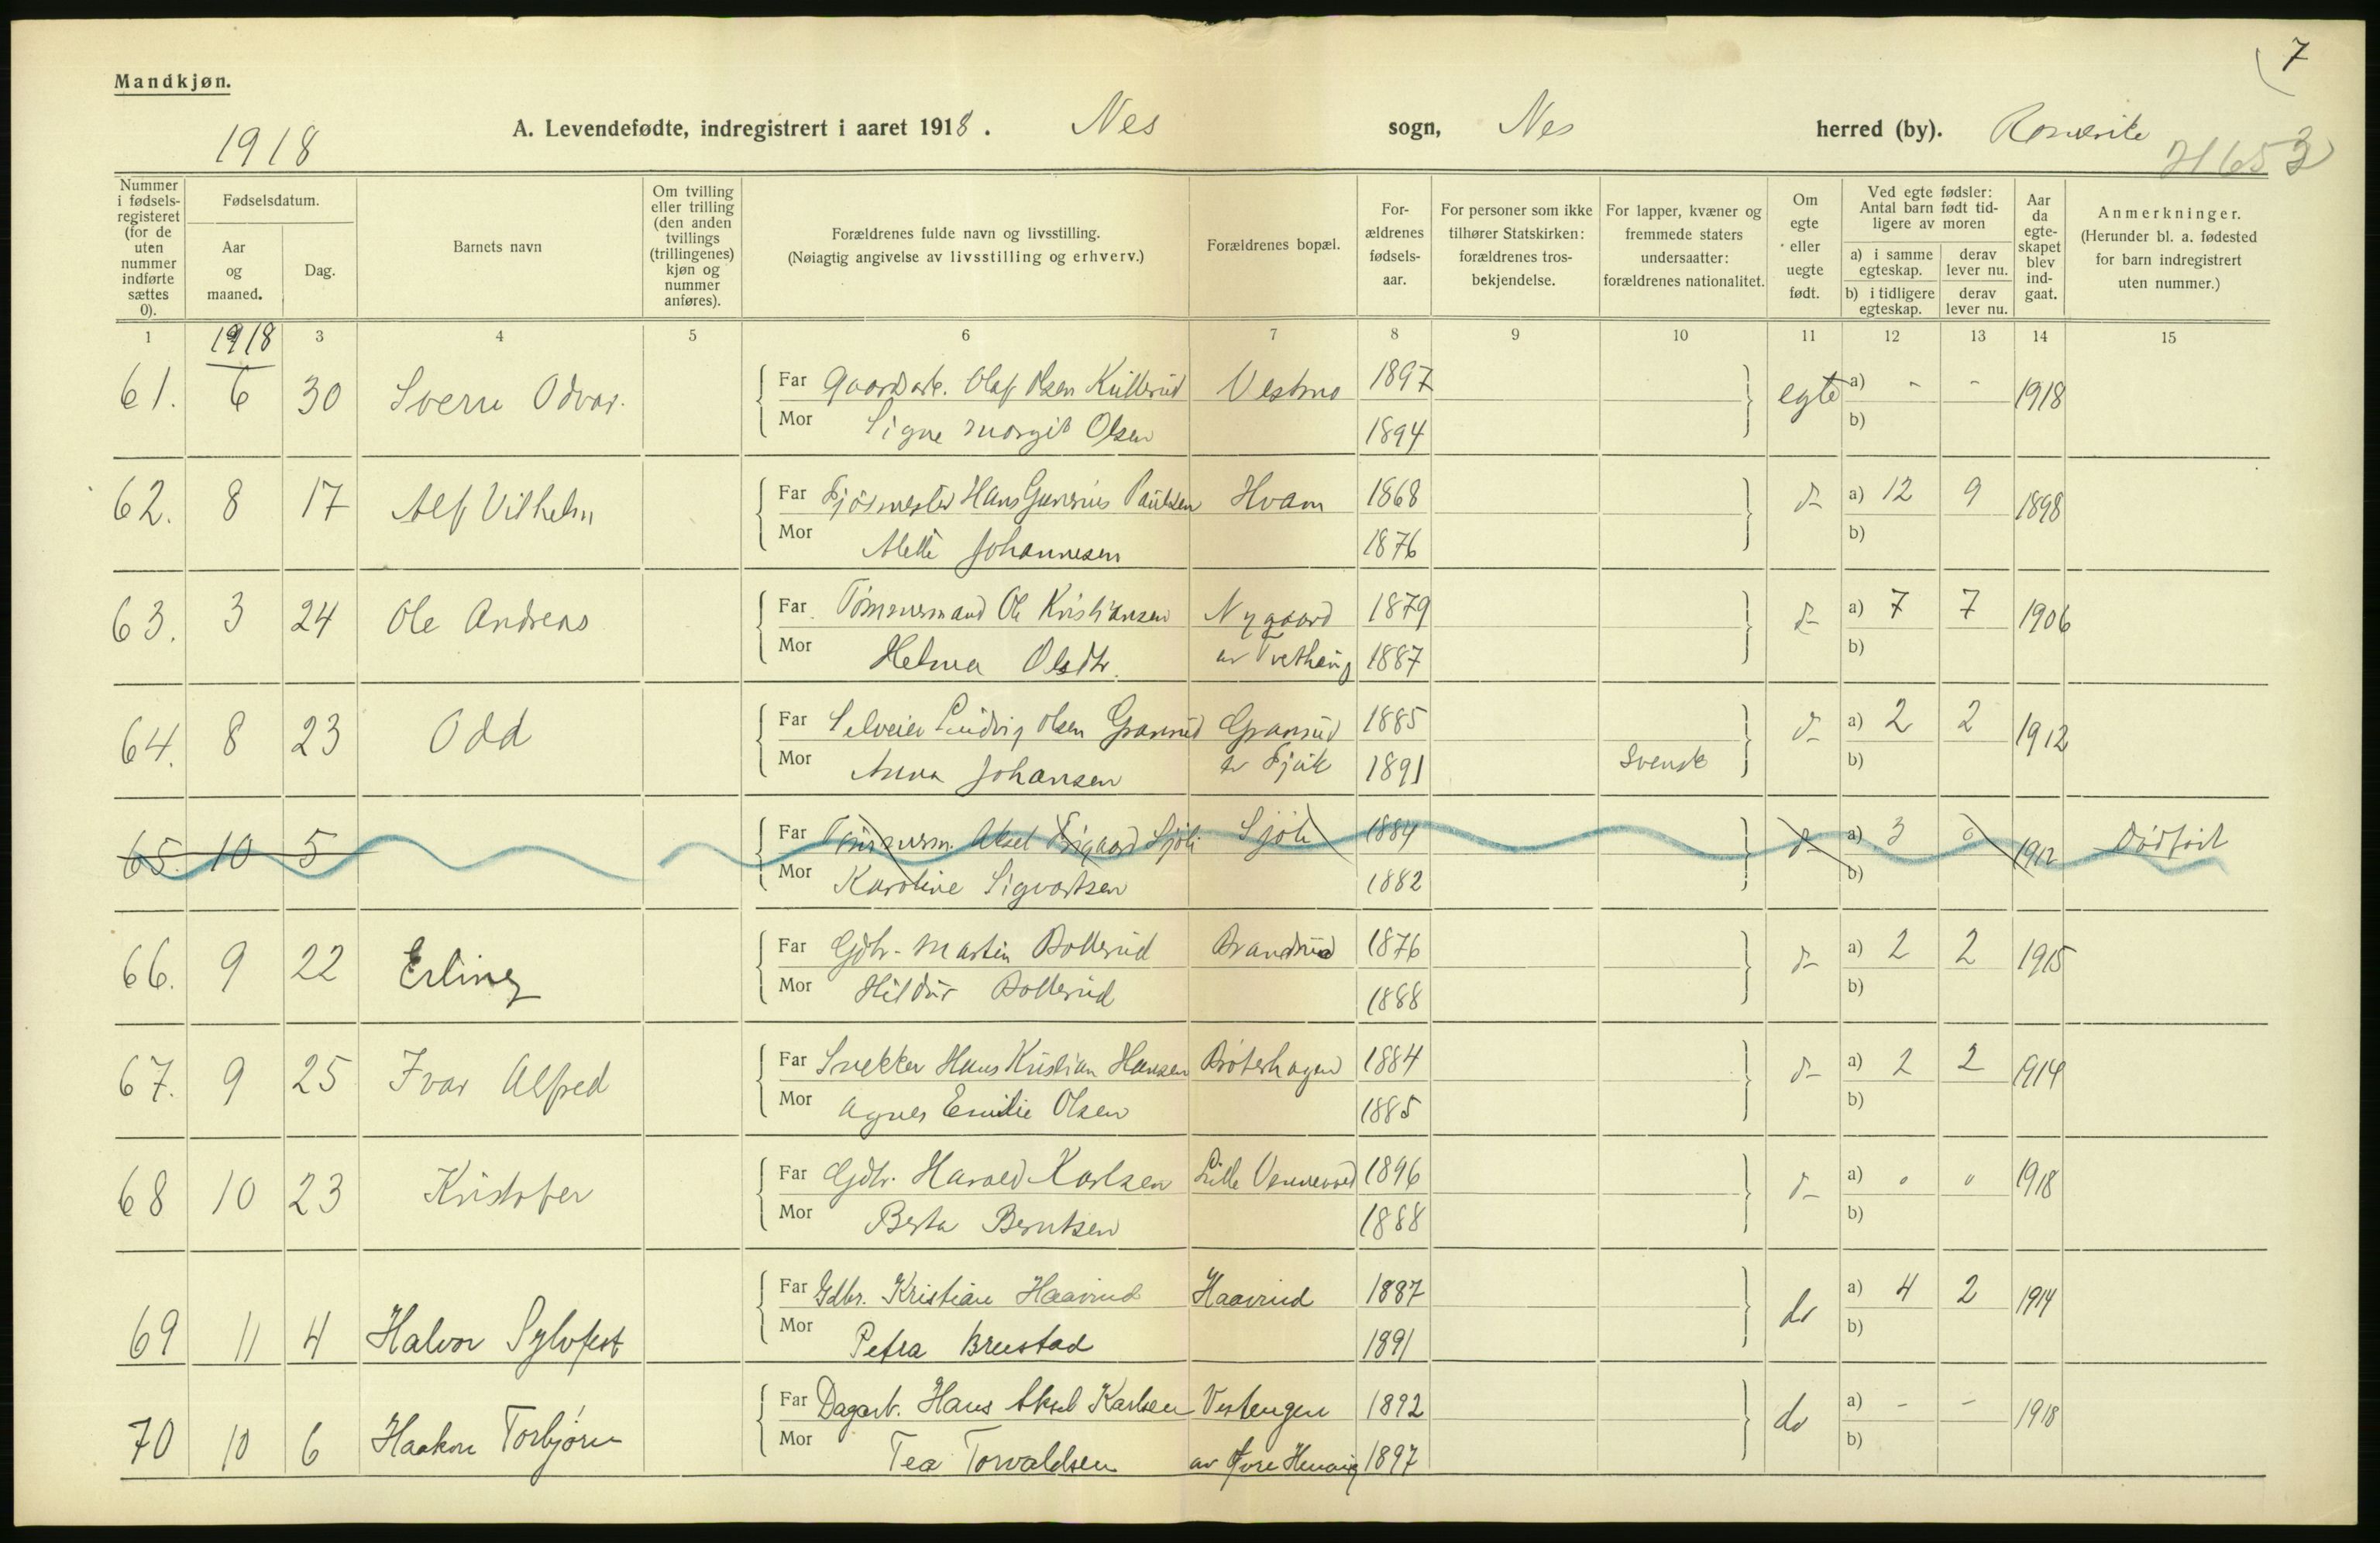 7
Mandkjøn.
1918
A. Levendefødte, indregistrert i aaret 1918. Nes sogn, Nes herred (by). Romerike
Nummer i fødsels-registeret (for de uten nummer indførte sættes 0).
Fødselsdatum.
Aar og maaned.
Dag.
Barnets navn
Om tvilling eller trilling (den anden tvillings (trillingenes) kjøn og nummer anføres).
Forældrenes fulde navn og livsstilling.
(Nøiagtig angivelse av livsstilling og erhverv.)
Forældrenes bopæl.
For-ældrenes fødsels-aar.
For personer som ikke tilhører Statskirken: forældrenes tros-bekjendelse.
For lapper, kvæner og fremmede staters undersaatter: forældrenes nationalitet.
Om egte eller uegte født.
Ved egte fødsler: Antal barn født tid-ligere av moren
a) i samme egteskap. derav lever nu.
b) i tidligere egteskap. derav lever nu.
Aar da egte-skapet blev ind-gaat.
Anmerkninger.
(Herunder bl. a. fødested for barn indregistrert uten nummer.)
1 3 4 5 6 7 8 9 10 11 12 13 14 15
1918
61. 6 30 Sverre Odvar. Far Gaardsarb. Olaf Olsen Kullerud Vestmo 1897 egte a) - - 1918
Mor Signe Margit Olsen 1894 b)
62. 8 17 Alf Vilhelm Far Fjøsmester Hans Gunerius Paulsen Hvam 1868 d- a) 12 9 1898
Mor Mette Johannesen 1876 b)
63. 3 24 Ole Andreas Far Tømmermand Ole Kristiansen Nygaard 1879 d- a) 7 7 1906
Mor Helma Olsdtr. av 1887 b)
64. 8 23 Odd Far Selveier Ludvig Olsen Granrud Granrud 1885 d- a) 2 2 1912
Mor Anna Johansen av Fjuk 1891 Svensk b)
65. 10 5 Far Tømmerm. Aksel Sjøli Sjøli 1884 d- a) 3 0 1912 Dødfødt
Mor Karoline Sigvartsen 1882 b)
66. 9 22 Erling Far Gdbr. Martin Bollerud Brandrud 1876 d- a) 2 2 1915
Mor Hildur Bollerud 1888 b)
67. 9 25 Ivar Alfred Far Snekker Hans Kristian Hansen Bråtenhagen 1884 d- a) 2 2 1914
Mor Agnes Emilie Olsen 1885 b)
68 10 23 Kristofer Far Gdbr. Harald Karlsen Lille Vennevold 1896 d- a) 0 0 1918
Mor Berta Berntsen 1888 b)
69 11 4 Halvor Sylvfest Far Gdbr. Kristian Haavrud Haavrud 1887 do a) 4 2 1914
Mor Petra Brustad 1891 b)
70 10 6 Haakon Torbjørn Far Dagarb. Hans Aksel Karlsen Vestengen 1892 do a) - - 1918
Mor Tea Torvaldsen av Øvre Henni 1897 b)